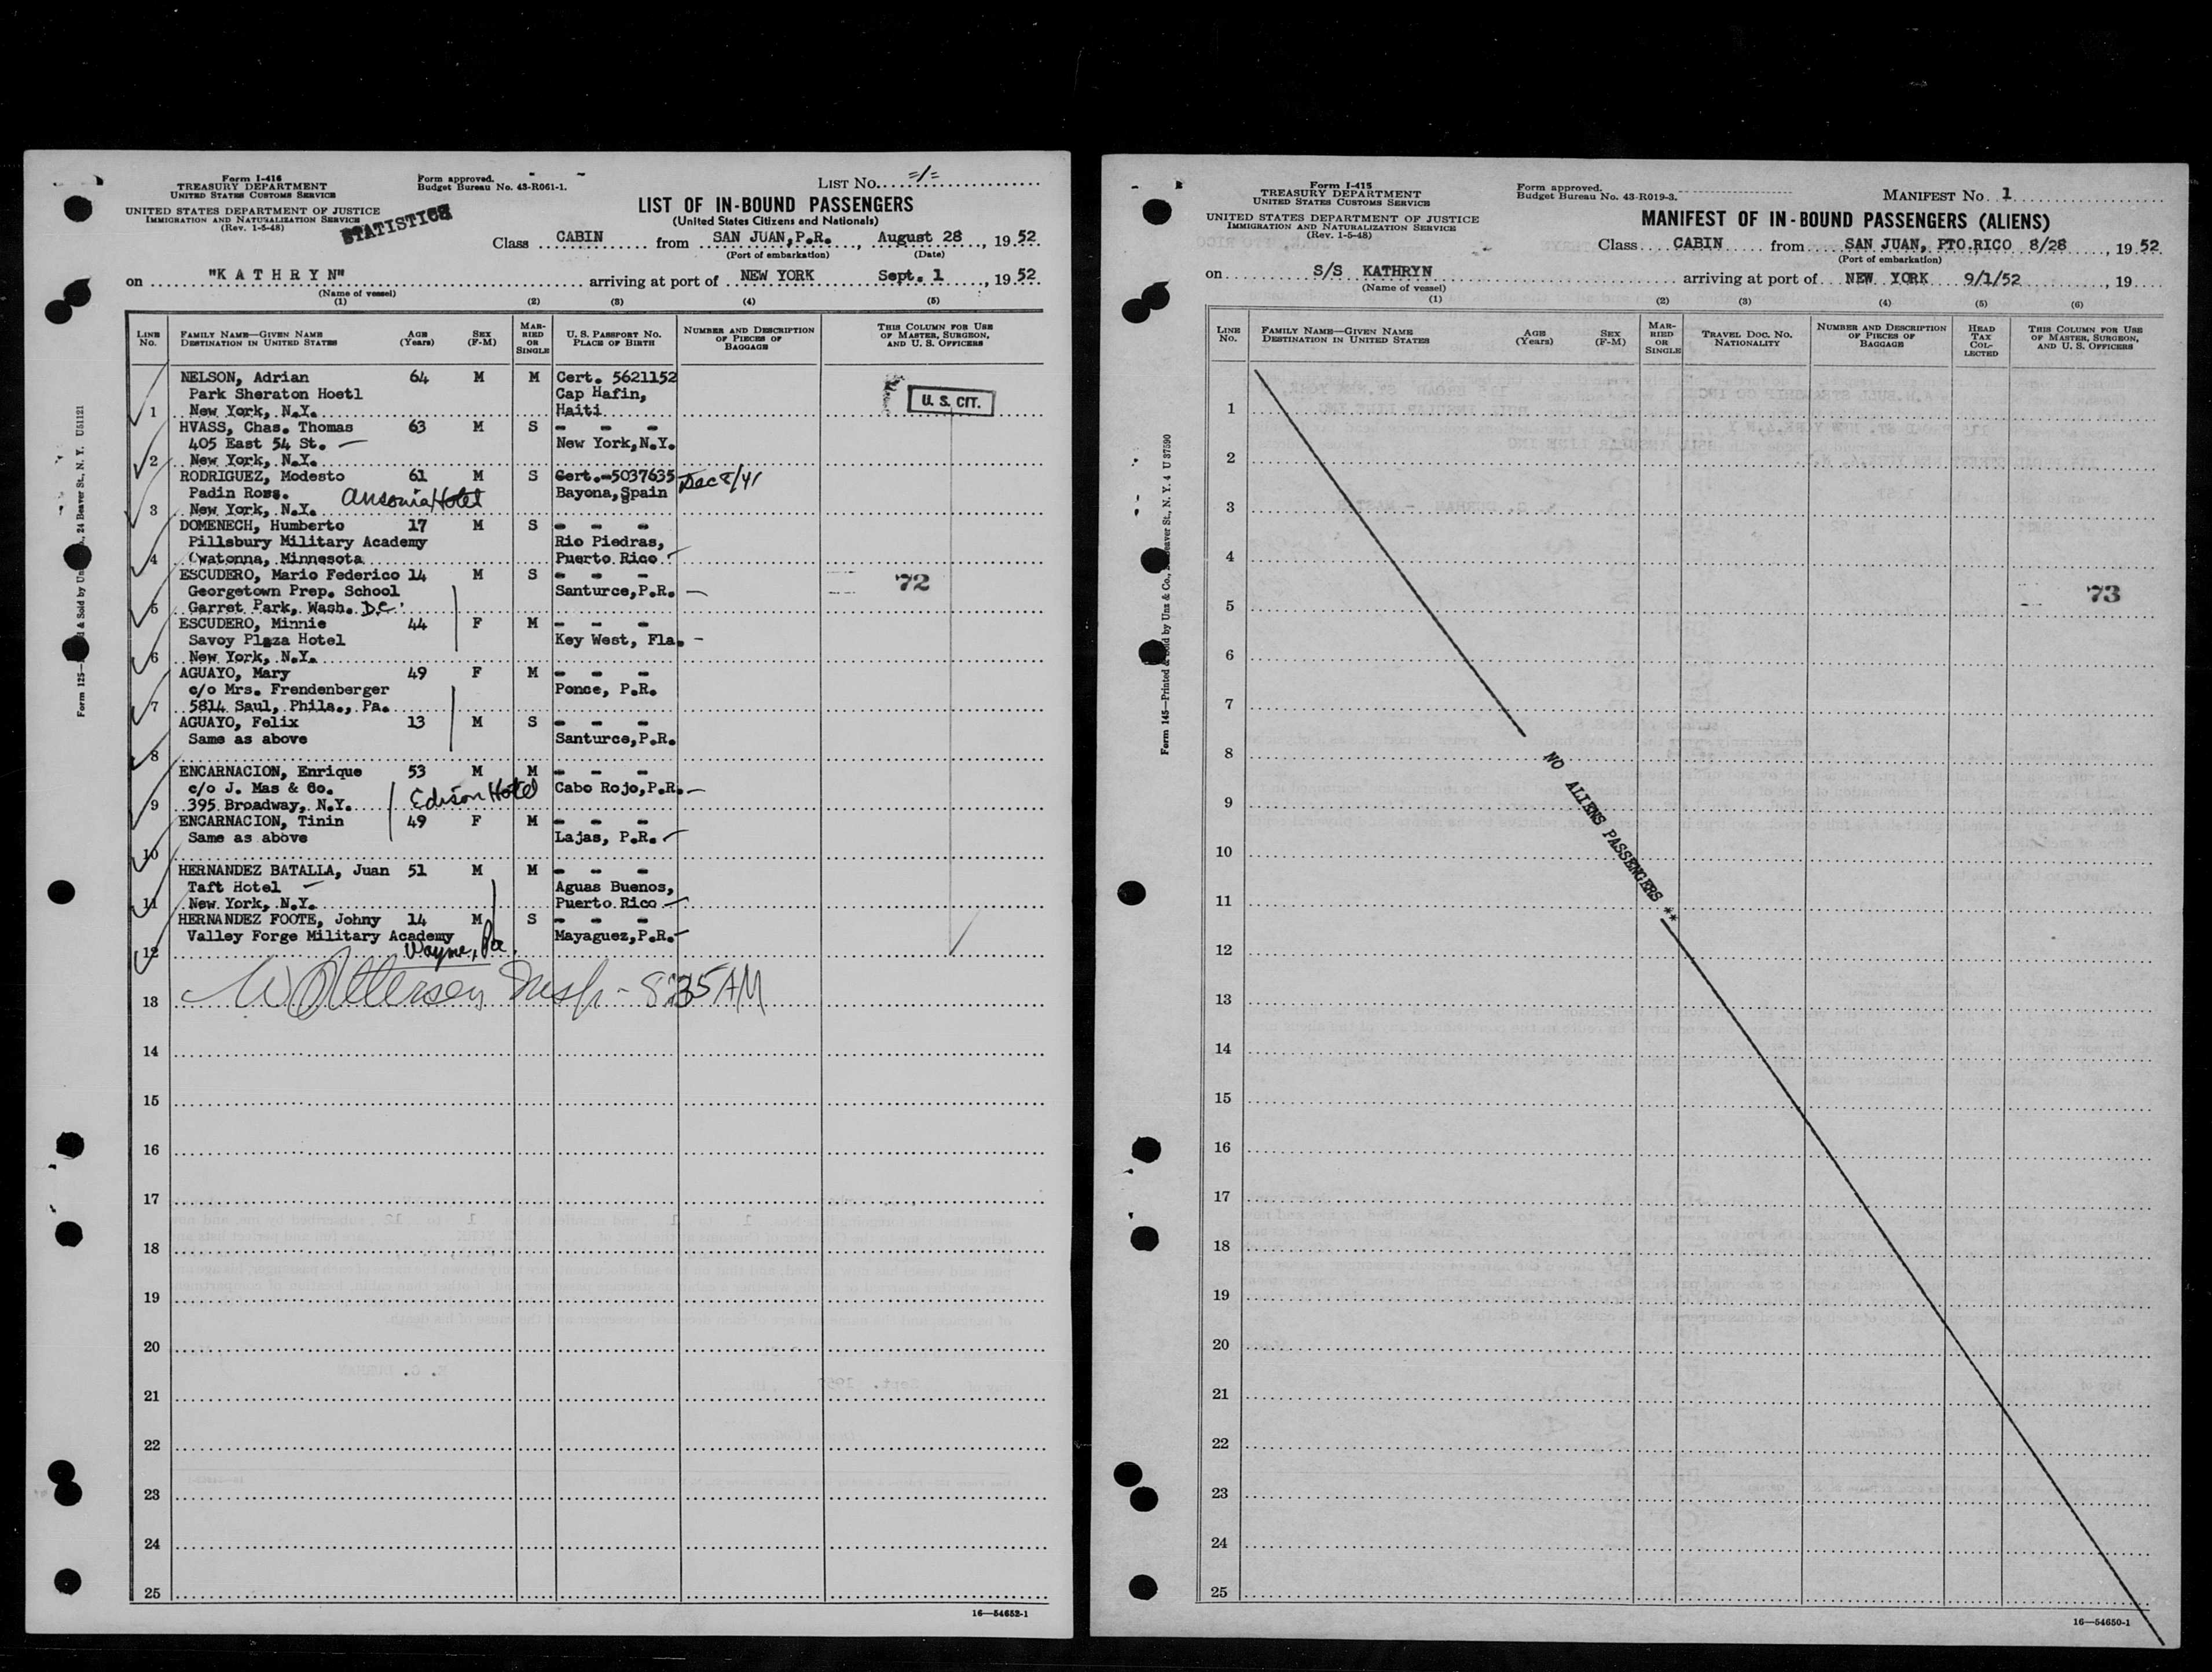 Form I-416
TREASURY DEPARTMENT
UNITED STATES CUSTOMS SERVICE
UNITED STATES DEPARTMENT OF JUSTICE
IMMIGRATION AND NATURALIZATION SERVICE
(Rev. 1-5-48)
STATISTICS
Form approved.
Budget Bureau No. 43-R061-1.
LIST No. -1-
LIST OF IN-BOUND PASSENGERS
(United States Citizens and Nationals)
Class CABIN from SAN JUAN, P.R., August 28, 1952
(Port of embarkation) (Date)
on "K A T H R Y N" arriving at port of NEW YORK Sept. 1, 1952
(Name of vessel)
(1) (2) (3) (4) (5)
LINE No. FAMILY NAME—GIVEN NAME DESTINATION IN UNITED STATES AGE (Years) SEX (F-M) MARRIED OR SINGLE U. S. PASSPORT NO. PLACE OF BIRTH NUMBER AND DESCRIPTION OF PIECES OF BAGGAGE THIS COLUMN FOR USE OF MASTER, SURGEON, AND U. S. OFFICERS
NELSON, Adrian 64 M M Cert. 5621152
Park Sheraton Hoetl Cap Hafin, U. S. CIT.
1 New York, N.Y. Haiti
HVASS, Chas. Thomas 63 M S - - -
405 East 54 St. — New York, N.Y.
2 New York, N.Y.
RODRIGUEZ, Modesto 61 M S Cert.-5037635 Dec 8/41
Padin Ross. Ansonia Hotel Bayona, Spain
3 New York, N.Y.
DOMENECH, Humberto 17 M S - - -
Pillsbury Military Academy Rio Piedras,
4 Owatonna, Minnesota Puerto Rico
ESCUDERO, Mario Federico 14 M S - - - 72
Georgetown Prep. School Santurce, P.R. —
5 Garret Park, Wash. D.C.
ESCUDERO, Minnie 44 F M - - -
Savoy Plaza Hotel Key West, Fla. -
6 New York, N.Y.
AGUAYO, Mary 49 F M - - -
c/o Mrs. Frendenberger Ponce, P.R.
7 5814 Saul, Phila., Pa.
AGUAYO, Felix 13 M S - - -
Same as above Santurce, P.R.
8
ENCARNACION, Enrique 53 M M - - -
c/o J. Mas & Co. Edison Hotel Cabo Rojo, P.R. —
9 395 Broadway, N.Y.
ENCARNACION, Tinin 49 F M - - -
Same as above Lajas, P.R.
10
HERNANDEZ BATALLA, Juan 51 M M - - -
Taft Hotel — Aguas Buenos,
11 New York, N.Y. Puerto Rico —
HERNANDEZ FOOTE, Johny 14 M S - - -
Valley Forge Military Academy Mayaguez, P.R.
12 Wayne, Pa.
13 Insp - 8:35 AM
14
15
16
17
18
19
20
21
22
23
24
25
16—54652-1
Form I-415
TREASURY DEPARTMENT
UNITED STATES CUSTOMS SERVICE
UNITED STATES DEPARTMENT OF JUSTICE
IMMIGRATION AND NATURALIZATION SERVICE
(Rev. 1-5-48)
Form approved.
Budget Bureau No. 43-R019-3.
MANIFEST No. 1
MANIFEST OF IN-BOUND PASSENGERS (ALIENS)
Class CABIN from SAN JUAN, PTO.RICO 8/28, 1952
(Port of embarkation)
on S/S KATHRYN arriving at port of NEW YORK 9/1/52, 19
(Name of vessel)
(1) (2) (3) (4) (5) (6)
LINE No. FAMILY NAME—GIVEN NAME DESTINATION IN UNITED STATES AGE (Years) SEX (F-M) MARRIED OR SINGLE TRAVEL DOC. NO. NATIONALITY NUMBER AND DESCRIPTION OF PIECES OF BAGGAGE HEAD TAX COLLECTED THIS COLUMN FOR USE OF MASTER, SURGEON, AND U. S. OFFICERS
1
2
3
4
5 73
6
7
8
NO ALIENS PASSENGERS **
9
10
11
12
13
14
15
16
17
18
19
20
21
22
23
24
25
16—54650-1